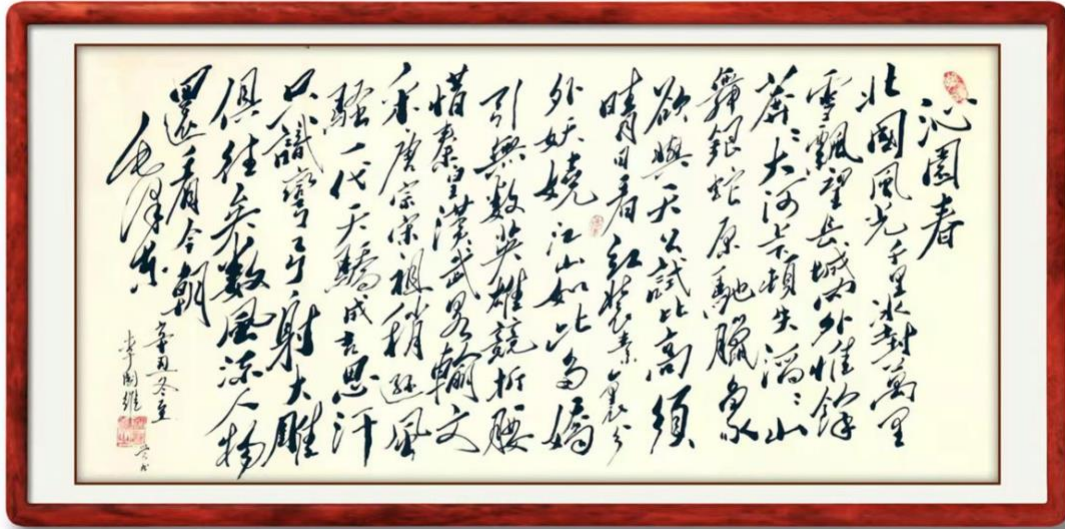 沁園春
北國風光千里冰封萬里
雪飄望長城內外惟餘
莽〻大河上下頓失滔〻山
舞銀蛇原馳臘象
欲與天公試比高須
晴日看紅裝素裹分
外妖嬈江山如此多嬌
引無數英雄競折腰
惜秦皇漢武略輸文
采唐宗宋祖稍遜風
騷一代天驕成吉思汗
只識彎弓射大雕
俱往矣數風流人物
還看今朝
毛澤東
辛丑冬至
李國維